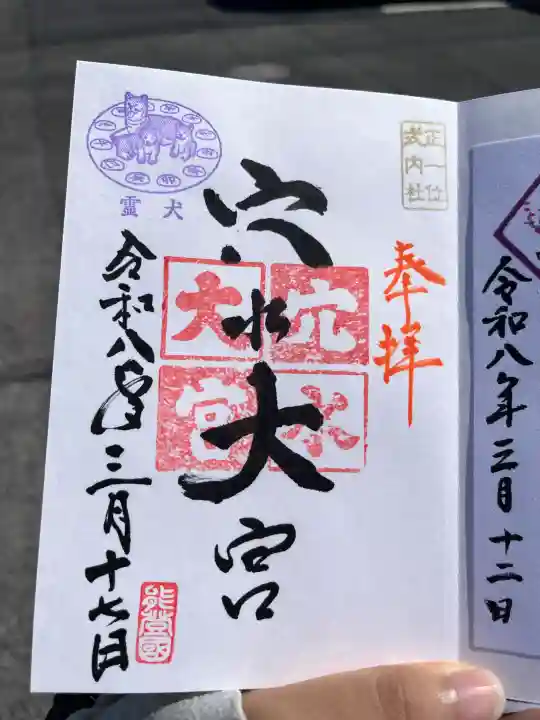 正一位
式内社
奉拝
穴水大宮
穴水
大宮
霊犬
令和八年三月十七日
能登國
令和八年三月十二日